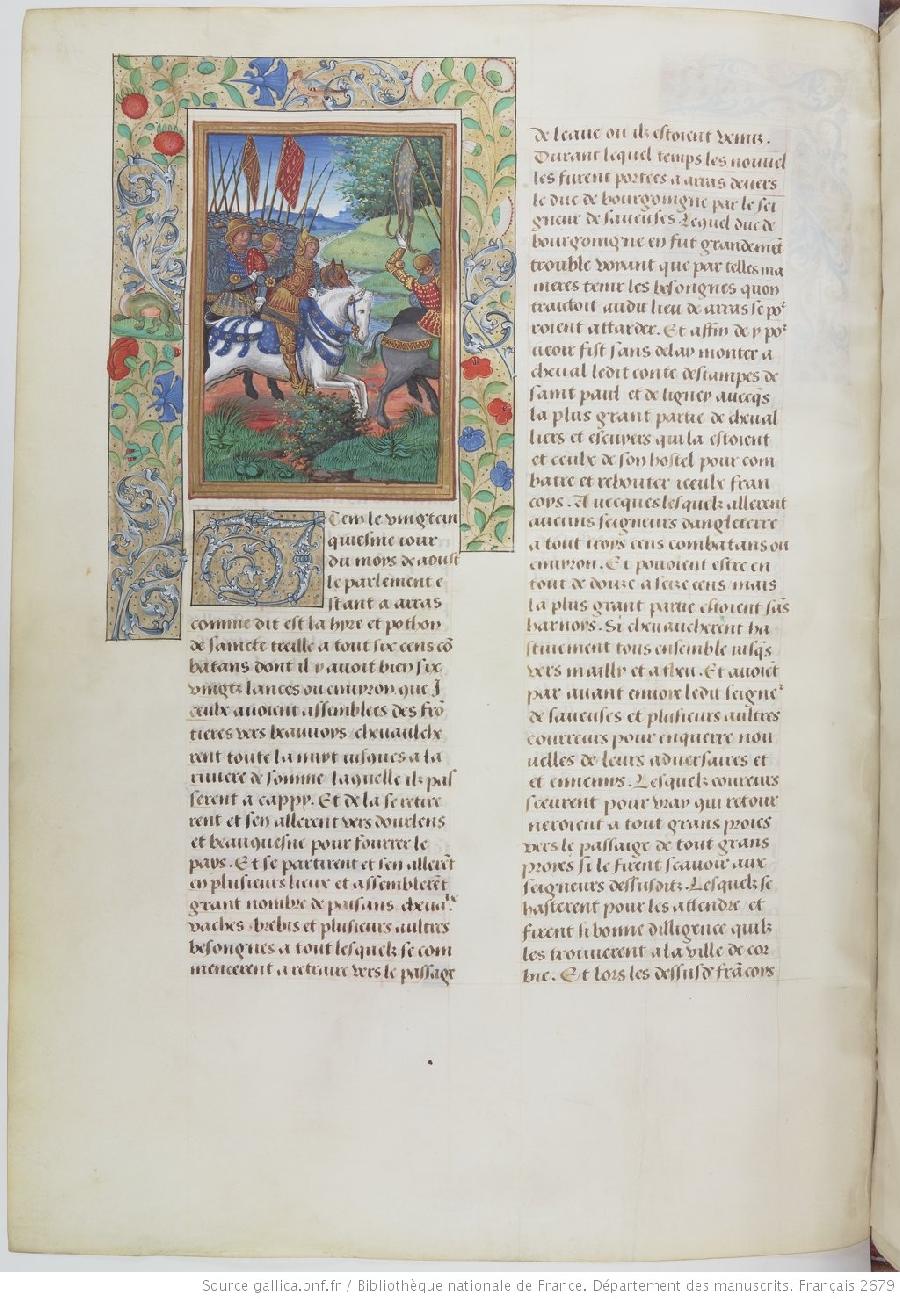 Item le vingtcin
quiesme iour
du moys de aoust
le parlement e
stant a arras
comme dit est la hyre et pothon
de saincte treille a tout six cens cō
batans dont il y auoit bien six
vingtz lances ou enuiron que J
ceulx auoient assemblers des frō
tieres vers beauuoys / cheuaulche
rent toute la nuyt iusques a la
riuiere de somme laquelle ilz pas
serent a cappy. Et de la se retire
rent et sen allerent vers dourlens
et beauquesne pour fourrer le
pays. Et se partirent et sen allerēt
en plusieurs lieux et assemblerēt
grant nombre de paisans cheuaulx
vaches brebis et plusieurs aultres
besongnes a tout lesquelz se com
mencerent a retraire vers le passage
de leaue ou ilz estoient venuz.
Durant lequel temps les nouuel
les furent portees a arras deuers
le duc de bourgoingne par le sei
gneur de saueuses. Lequel duc de
bourgoingne en fut grandemēt
trouble voyant que par telles ma
nieres tenir les besongnes quon
traictoit audit lieu de arras se po͛
roient attarder. Et affin de y po͛
ueoir fist sans delay monter a
cheual ledit conte destampes de
saint paul et de ligney auecq̄s
la plus grant partie de cheual
liers et escuyers qui la estoient
et ceulx de son hostel pour com
batre et rebouter iceulx fran
coys. Auecques lesquelz allerent
aucuns seigneurs dangleterre
a tout troys cens combatans ou
enuiron. Et pouoient estre en
tout de douze a seize cens / mais
la plus grant partie estoient sās
harnoys. Si cheuaucherent ha
stiuement tous ensemble iusq̄s
vers mailly et a sheu. Et auoiēt
par auant enuoie ledit seigne͛
de saueuses et plusieurs aultres
courreurs pour enquerre nou
uelles de leurs aduersaires et
et ennemys. Lesquelz coureurs
sceurent pour vray qui retour
neroient a tout grans proies
vers le passage de tout grans
proyes si le firent scauoir aux
seigneurs dessusditz. Lesquelz se
hasterent pour les attendre / et
firent si bonne dilligence quilz
les trouuerent a la ville de cor
bie. Et lors les dessusd͛ frācoys
Source gallica.bnf.fr / Bibliothèque nationale de France. Département des manuscrits. Français 2679